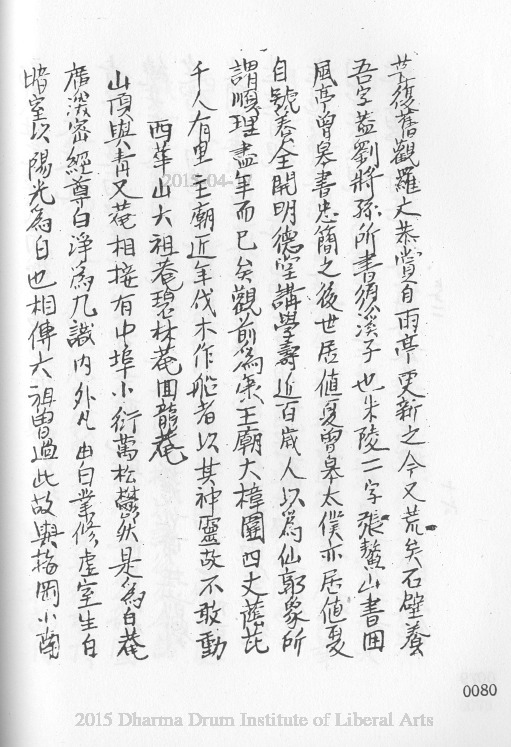 復舊觀羅大恭賞自雨亭更新之今又荒矣石壁養
吾字蓋劉將孫所書須溪子也米陵二字張鰲山書田
風亭曾皋書忠簡之後世居值夏曾皋太僕亦居值夏
自號養全開明德堂講學壽近百歲人以為仙郭象所
謂順理盡年而已矣觀前為王廟大樟圍四丈蔭芘
千人有里王廟近年伐木作船者以其神靈故不敢動
西華山大祖菴碧材菴回龍菴
山頂與青又菴相接有中埠小衍萬松鬱然是為白菴
廣深密經尊白淨為九識內外凡由白業修虛室生白
暗室以陽光為白也相傳大祖曾過此故與指岡小蘭
0080
2015-04-
2015 Dharma Drum Institute of Liberal Arts